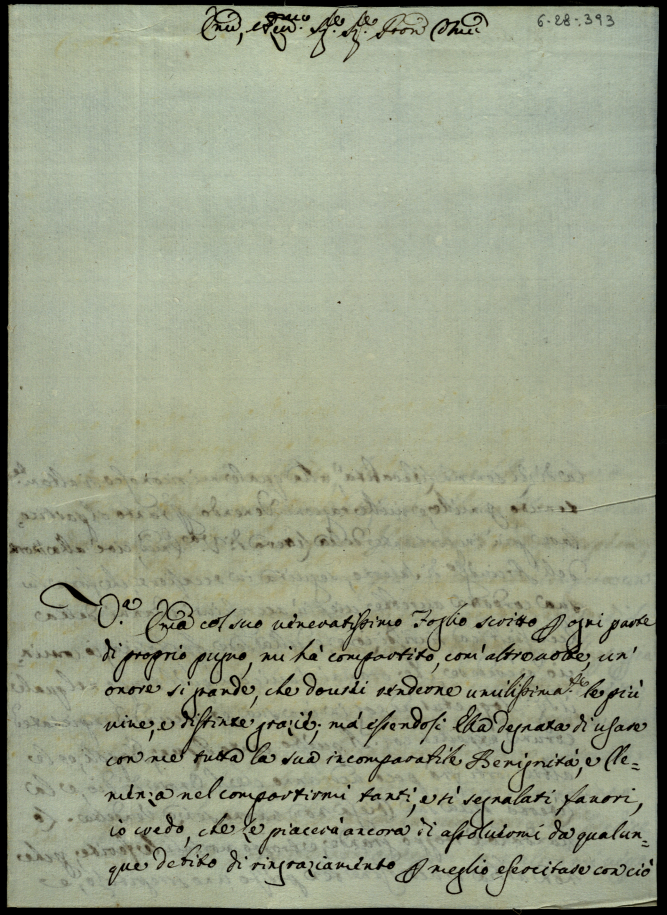 6-28-393
Em̃o, e Rmo. Sig.e Sig.e Pron Oss̃mo
V.a Em̃a col suo veneratissimo Foglio scritto p ogni parte
di proprio pugno, mi hà compartito, com'altre volte, un'
onore si grande, che dourei renderne umilissima.te le più
vive, e distinte grazie; mà essendosi Ella degnata di usare
con me tutta la sua incomparabile Benignità, e Cle-
menza nel compartirmi tanti, e sì segnalati favori,
io credo, che le piacerà ancora di assoluermi da qualun-
que debito di ringraziamento p meglio esercitare con ciò